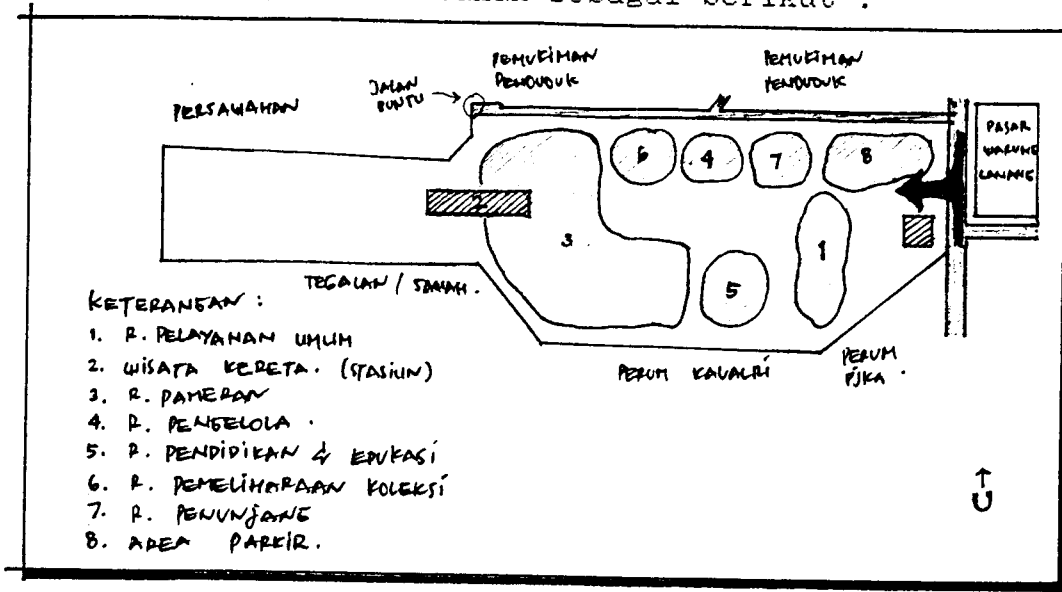 sebagai berikut :
PEMUKIMAN
PENDUDUK
PEMUKIMAN
PENDUDUK
JALAN
BUNTU
PERSAWAHAN
PASAR
WARUNG
LANANG
6
4
7
8
2
3
1
5
TEGALAN / SAWAH.
PERUM KAVALRI
PERUM
PJKA.
KETERANGAN :
1. R. PELAYANAN UMUM
2. WISATA KERETA. (STASIUN)
3. R. PAMERAN
4. R. PENGELOLA.
5. R. PENDIDIKAN & EDUKASI
6. R. PEMELIHARAAN KOLEKSI
7. R. PENUNJANG
8. AREA PARKIR.
U